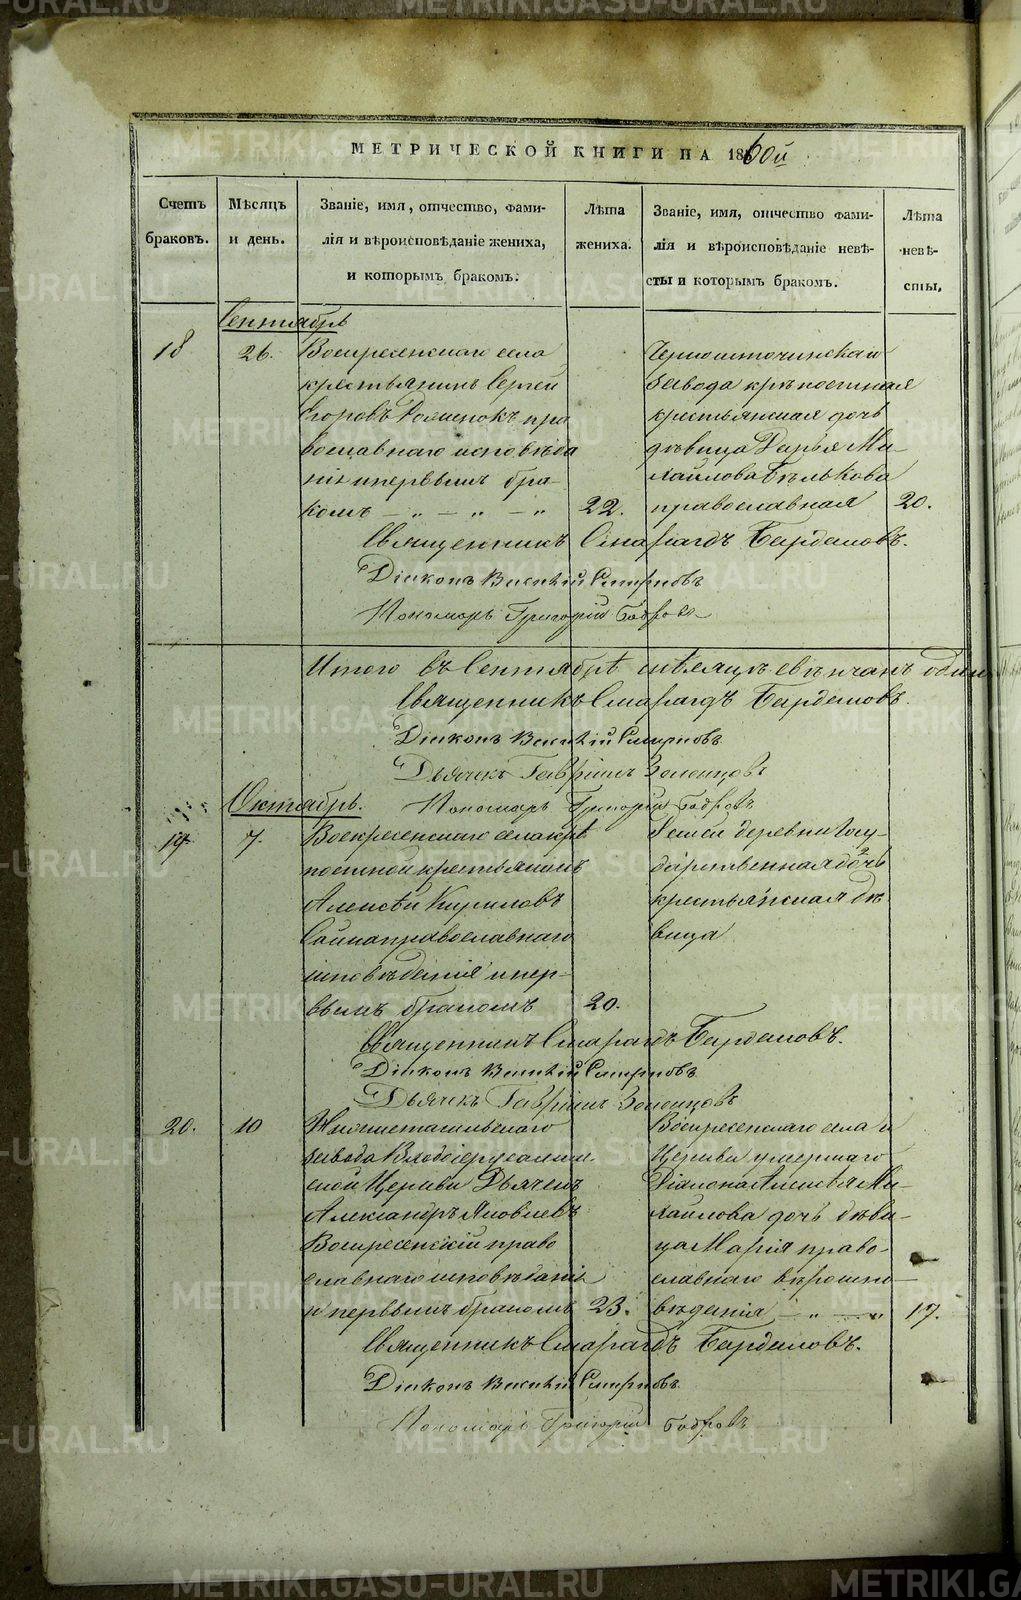 МЕТРИЧЕСКОЙ КНИГИ НА 1860й
Счетъ браковъ.
Мѣсяцъ и день.
Званіе, имя, отчество, фами-
лія и вѣроисповѣданіе жениха,
и которымъ бракомъ.
Лѣта жениха.
Званіе, имя, отчество фами-
лія и вѣроисповѣданіе невѣ-
сты и которымъ бракомъ.
Лѣта невѣ-
сты.
Сентябрь
18
26.
Воскресенскаго села
крестьянинъ Сергей
Егоровъ пра
вославнаго исповѣда
нія и первымъ бра-
комъ – „ – „ – „
22.
Черноисточинскаго
завода крѣпостная
крестьянская дочь
дѣвица Дарья Ми-
хайлова Бѣлькова
православная
20.
Священникъ Смарагдъ Бирдюковъ.
Діаконъ Василій Смирновъ
Пономарь Григорій
Итого въ Сентябрѣ мѣсяцѣ свѣнчанъ один
Священникъ Смарагдъ
Діаконъ Василій Смирновъ
Дьячекъ Гавріилъ
Октябрь.
Пономарь Григорій
19
7.
Воскресенскаго села крѣ
постной крестьянинъ
Алексѣй Кириловъ
православнаго
исповѣданія и пер-
вымъ бракомъ
20.
деревни Госу-
дарственная дочь
крестьянская дѣ
вица
Священникъ Смарагдъ
Діаконъ Василій Смирновъ
Дьячекъ Гавріилъ
20.
10
Нижнетагильскаго
завода Входоіерусалим-
ской Церкви Дьячекъ
Александръ Яковлевъ
Воскресенскій право
славнаго исповѣданія
и первымъ бракомъ
23.
Воскресенскаго села
Церкви умершаго
Діакона Алексѣя Ми-
хайлова дочь дѣви-
ца Марія право-
славнаго вѣроиспо-
вѣданія – „ – „
17.
Священникъ Смарагдъ
Діаконъ Василій Смирновъ
Пономарь Григорій
METRIKI.GASO-URAL.RU